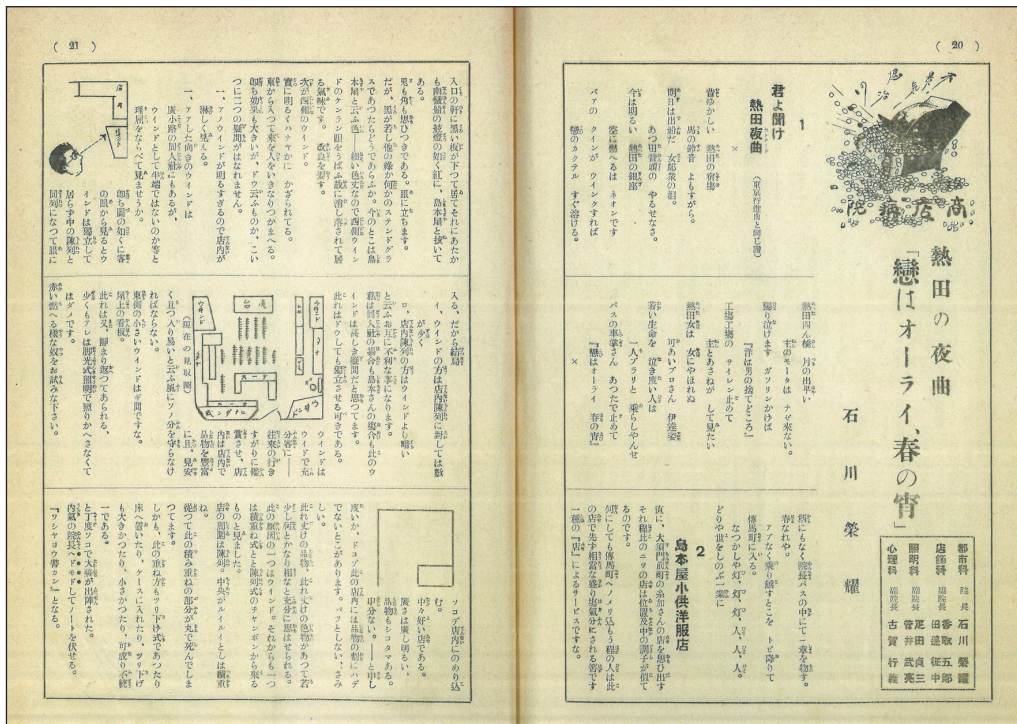 ( 20 )
商店病院
熱田の夜曲
「戀はオーライ、春の宵」
石川榮耀
都市科 院長 石川榮耀
店飾科 副院長 香取五郎
田邊征中
照明科 副院長 疋田貞三
菅井武亮
心理科 副院長 古賀行義
1
君よ聞け
熱田夜曲
(東京行進曲と同じ譜)
×
昔ゆかしい 熱田の宿場
馬の鈴音 よもすがら。
明日は出船だ 女郎衆の涙。
あつた管頭の やるせなさ。
今は明るい 熱田の銀座
空に燃へるは ネオンです
バアの クインが ウインクすれば
戀のカクテル すぐ溶ける。
熱田四ん橋 月の出早い
主のモータは ナゼ來ない。
獨り泣けます ガソリンかけば
『洋は男の捨てどころ』
工場工場の サイレン止めて
主とあさねが して見たい
熱田女は 女にやほれぬ
可あいプロさん 伊達姿
若い生命を 泣き度い人は
一人ブラリと 乘らしやんせ
バスの車掌さん あつたで止めて
『戀はオーライ 春の宵』
×
柄にもなく院長バスの中にて一章を物す。
春なれや。
アブなく乘り越すとこを トビ降りて
傳馬町に入る。
なつかしや灯、灯、灯、人、人、人。
どりや世をしのぶ一業に
2
島本屋小供洋服店
直に、大須門前町の糸加さんの店を思ひ出す
それ程此のニツの店は位置及中の調子が似て
るのです。
何にしても傳馬町へノメリ込もう程の人は此
の店で先す相當な盛り塲氣分にされる筈です
一種の『店』によるサービスですな。
( 21 )
入口の所に黑い板が下つて居てそれにあたか
も南蠻船の鼓樓の如く紅に、島本屋と拔いて
ある。
兎も角も思ひつきである。眼に立ちます。
だが、黑が若し他の綠か何かのステンドグラ
スであつたらどうであらふか。今のとこは島
本屋と云ふ色――細い色丈なので西側ウイン
ドのケンラン眼をうばふ裝に消し落されて居
る氣味です。 改良を要す。
次が西側のウインド。
實に明るくハナやかに かざられてる。
東から入つて來を人をいきなりつかまへる。
卽ち効果も大きいが、ドウ云ふものか、こい
つに二つの疑問がはなれません。
一、アノウインドが明るすぎるので店内が
淋しく見える。
一、アアした向きのウインドは
廣小路の同人社にもあるが、
ウインドとして半端ではないのか等と
理屈をならべて見ませうか。
卽ち圖の如くに客
の眼から見るとウ
インドは獨立して
居らず中の陳列と
同列になつて眼に
入る、だから結局
イ、ウインドの方は店内陳列に對しては數
が少く
ロ、店内陳列の方はウインドより暗い
と云ふお互に不利な事になります。
私は同人社の塲合も島本さんの塲合も此のウ
インドは甚しき疑問だと思つてます。
此れはドウしても獨立させる可きである。
(現在の見取圖)
ウインドは
ウインドで充
分客に――
往來の行き
すがりに鑑
賞させ、店
内は店内で
品物を豐富
に且、見安
く且つ入り易いと云ふ風にソノ分を守らなけ
ればならない。
東側の小さいウインドはギ問ですな。
屋上の看板。
此れは又、靜まり返つてあられる、
少くもアレは脚光式照明で照りかへさなくて
はダメです。
赤い燃へる樣な奴をお試みな下さい。
ソコデ店内にのめり込
む。
中々好い店である。
廣さは廣し明るい、
品物もシコタマある。
申分ない。――と申し
度いか、ドコツ此の店内には品物の割にハデ
でないとこがあります。パツとしない、さみ
しい。
此れ丈けの品物、此れ丈けの色物があつて若
少し何とかなり相なと充分に思はせられる。
此の原因の一つはウインド。それからも一つ
は積重ね式と陳列式のチヤンポンから來る
ものと見ました。
店の周圍は陳列。中央がルイルイとした積重
ね。
從つて此の積み重ねの部分が丸で死んでしま
つてます。
しかも、此の重ね方もツリ下け式であつたり
床へ置いたり、ケースに入れたり、ツリ下げ
も大きかつたり、小さかつたり、可成り不統
一である。
と丁度ソコで大將が出陣された。
内氣の院長ヘドモドしてノートを伏せる。
『ワシヤヨウ書カン』となる。